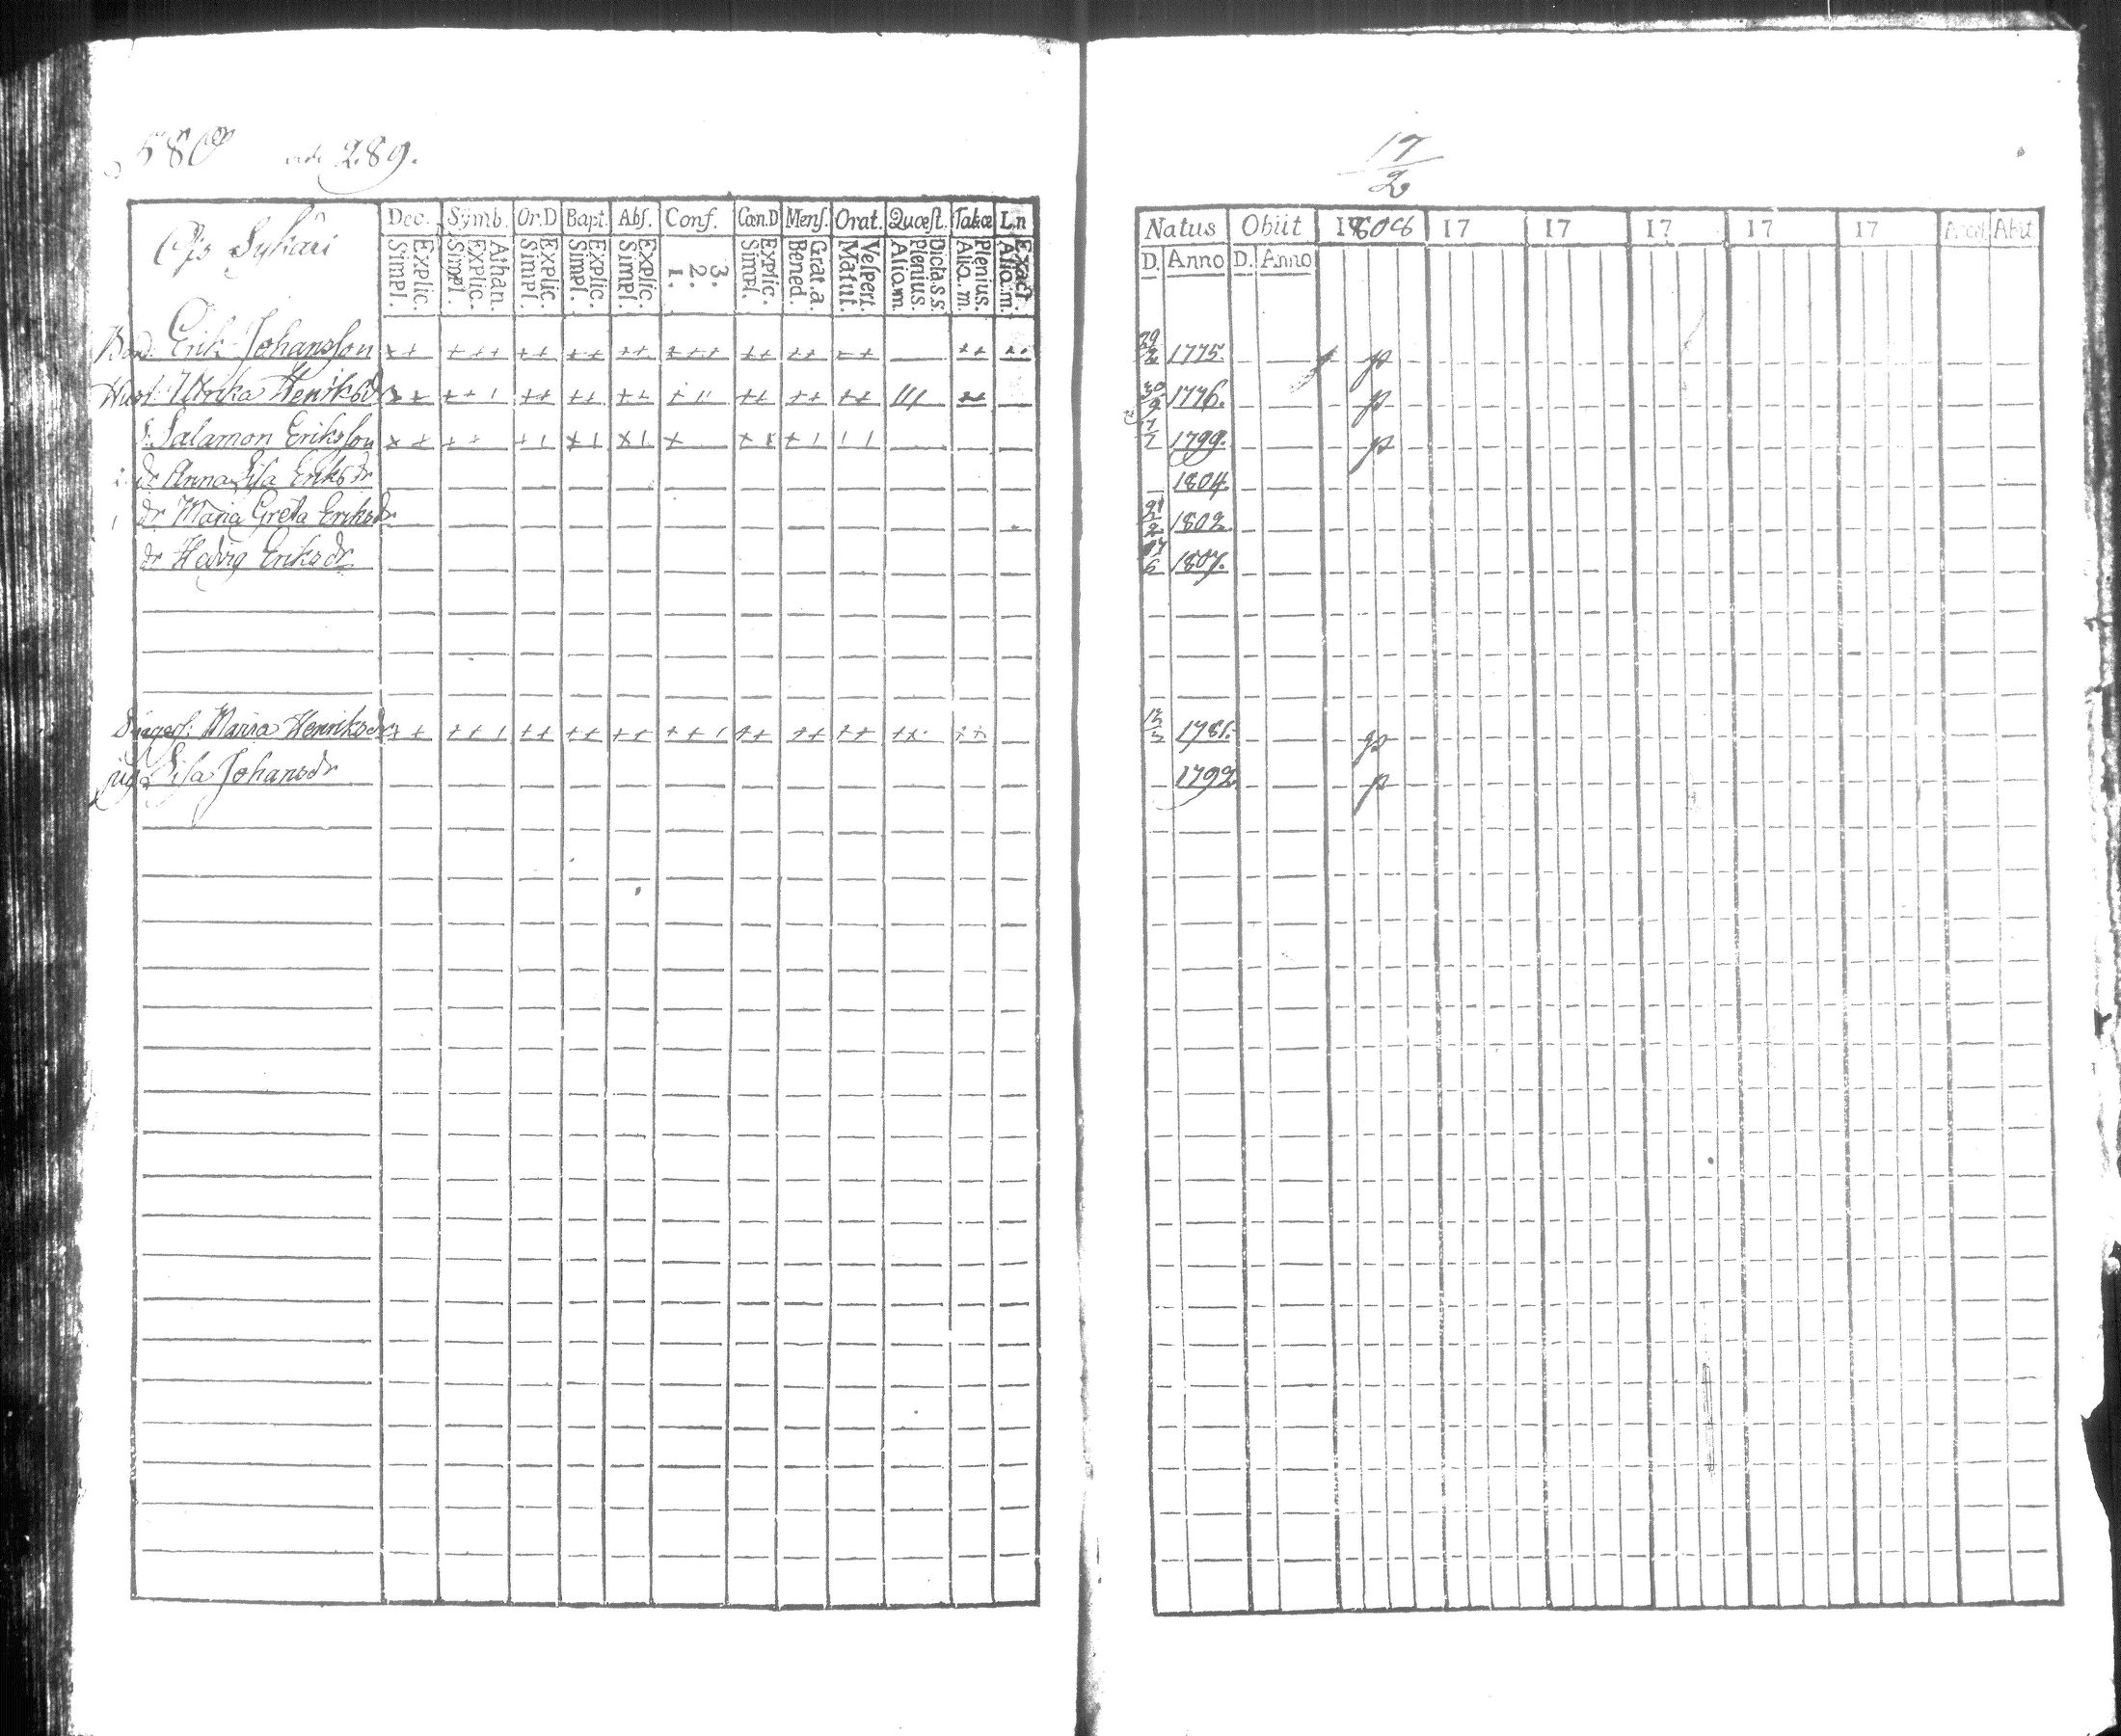 580 289.
17/2
Dec. Symb. Or.D Bapt. Abs. Conf. Cœn.D Mens. Orat. Quæst. Tabæ L.n
Explic. Simpl. Athan. Explic. Simpl. Explic. Simpl. Explic. Simpl. Explic. Simpl. 3. 2. 1. Explic. Simpl. Grat.a Bened. Vespert. Matut. Dicta.s.s. Plenius. Alio.m Plenius. Alio.m. Exact. Alio.m.
Natus Obiit 1806 17 17 17 17 17 Acced Abit
D. Anno D. Anno
Bond. Erik Johansson ++ +++ ++ ++ ++ +++ ++ ++ ++ ++ 29/2 1775. p
Hust. Ulrika Henriksdr ++ ++1 ++ ++ ++ ++ ++ ++ 30/9 1776. p
S. Salamon Eriksson ++ ++ +1 +1 +1 + +1 11 1/7 1799. p
dr Anna Lisa Eriksdr 1804.
dr Maria Greta Eriksdr 21/2 1802.
dr Hedvig Eriksdr 17/6 1807.
Maria Henriksdr ++ ++1 ++ ++ ++ ++1 ++ ++ ++ ++ ++ 1781. p
pig. Lisa Johansdr 1792. p